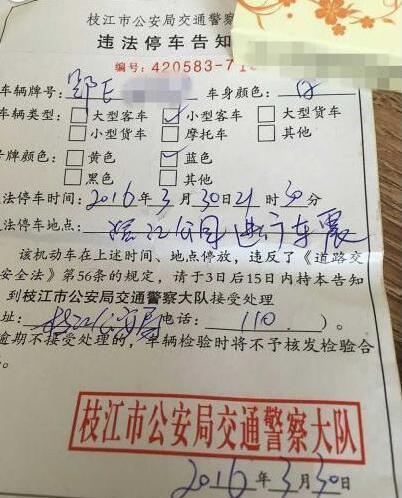 枝江市公安局交通警察
违法停车告知
编号：420583-71
车辆牌号：鄂E 车身颜色：白
车辆类型：□大型客车 ☑小型客车 □大型货车
□小型货车 □摩托车 □其他
号牌颜色：□黄色 ☑蓝色
□黑色 □其他
法停车时间：2016年3月30日21时30分
法停车地点：滨江公园进行车震
该机动车在上述时间、地点停放，违反了《道路交
安全法》第56条的规定，请于3日后15日内持本告知
到枝江市公安局交通警察大队接受处理
址：枝江公安局电话：110）。
逾期不接受处理的，车辆检验时将不予核发检验合
。
枝江市公安局交通警察大队
2016年3月30日